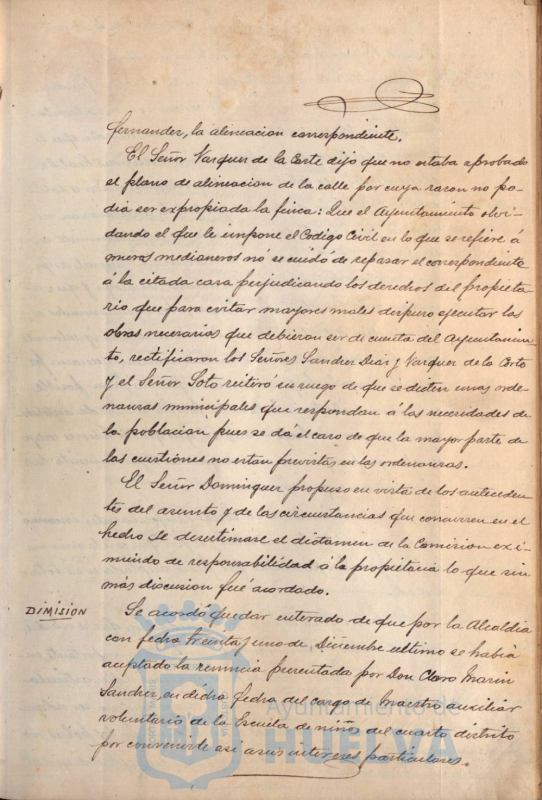 fernandez, la alineacion correspondiente.
El Señor Vazquez de la Corte dijo que no estaba aprobado
el plano de alineacion de la calle por cuya razon no po-
dia ser expropiada la finca: Que el Ayuntamiento olvi-
dando el que le impone el Codigo Civil en lo que se refiere á
muros medianeros nó se cuidó de repasar el correspondiente
á la citada casa perjudicando los derechos del propieta-
rio que para evitar mayores males dispuso ejecutar las
obras necesarias que debieron ser de cuenta del Ayuntamien-
to, rectificaron los Señores Sanchez Diaz y Vazquez de la Corte
y el Señor Soto reiteró su ruego de que se dicten unas orde-
nanzas municipales que respondan á las necesidades de
la poblacion pues se dá el caso de que la mayor parte de
las cuestiones no estan previstas en las ordenanzas.
El Señor Dominguez propuso en vista de los anteceden-
tes del asunto y de las circunstancias que concurren en el
hecho se desestimase el dictamen de la Comision exi-
miendo de responsabilidad á la propietaria lo que sin
más discusion fué acordado.
DIMISION
Se acordó quedar enterado de que por la Alcaldia
con fecha treinta y uno de Diciembre ultimo se habia
aceptado la renuncia presentada por Don Claro Marin
Sanchez, en dicha fecha del cargo de Maestro auxiliar
voluntario de la Escuela de niños del cuarto distrito
por convenirle asi a sus intereses particulares.
Ayuntamiento de
HUELVA